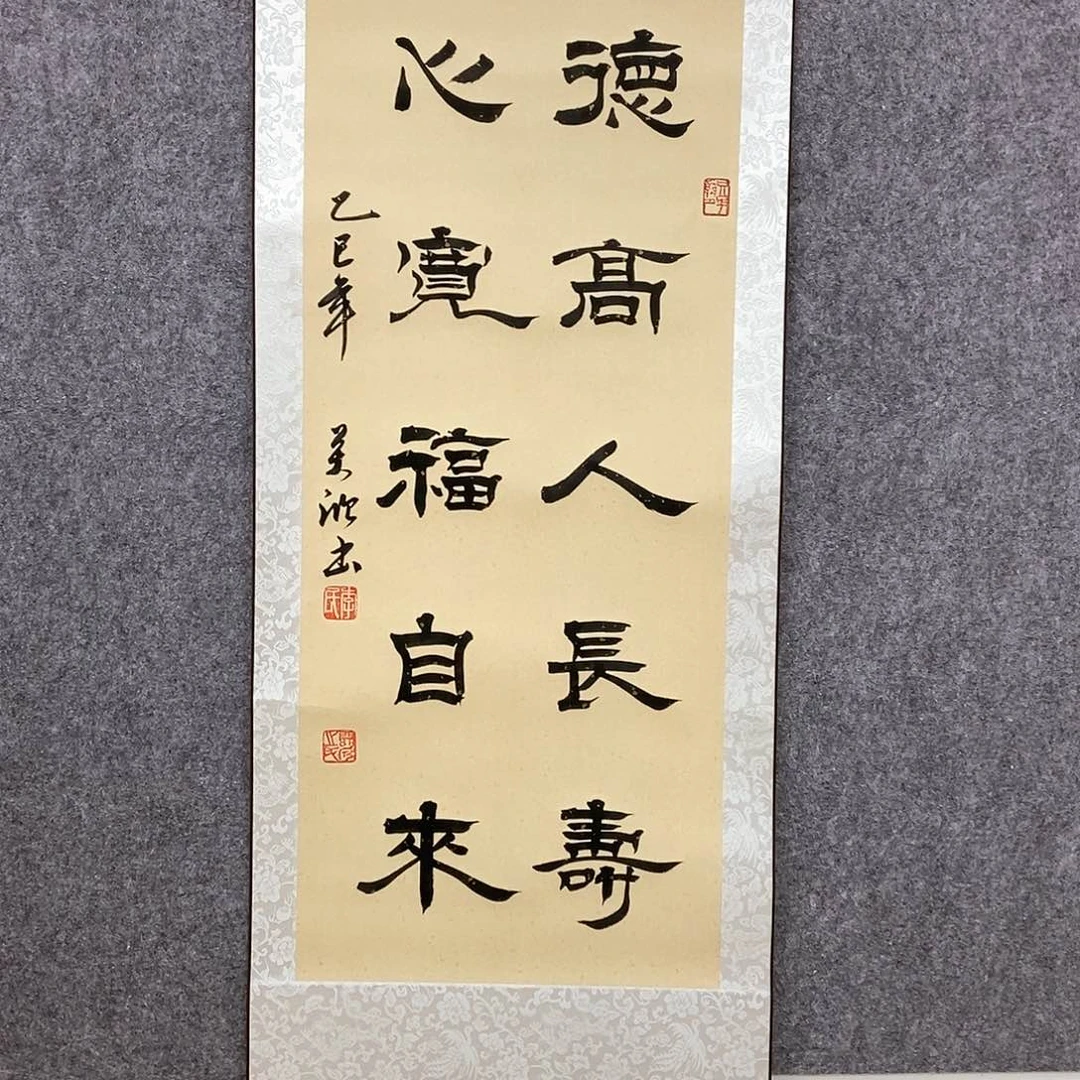 德高人長壽
心寬福自來
乙巳年 美欣书